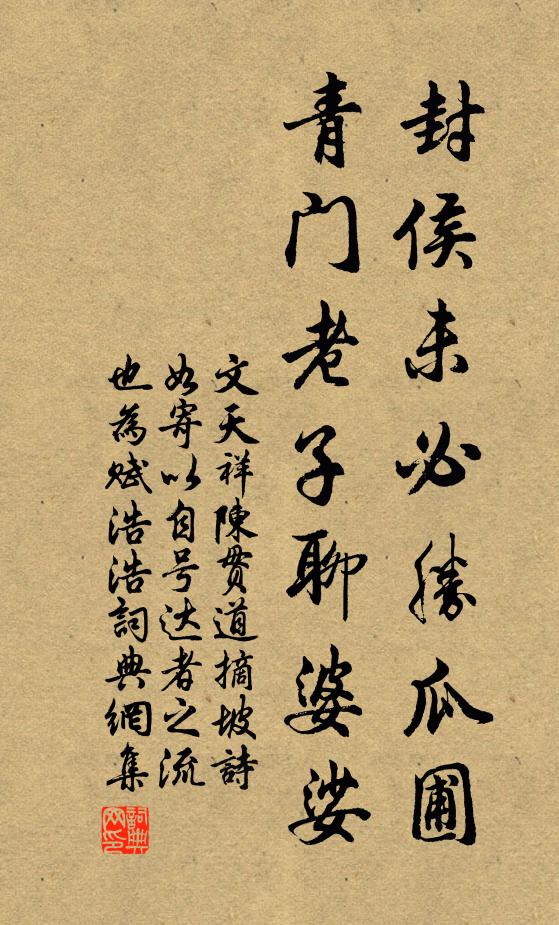 封侯未必勝瓜圃
青门老子聊婆娑
文天祥陳贯道摘坡詩
如寄以自号达者之流
也為赋浩浩詞典網集
詞典网印